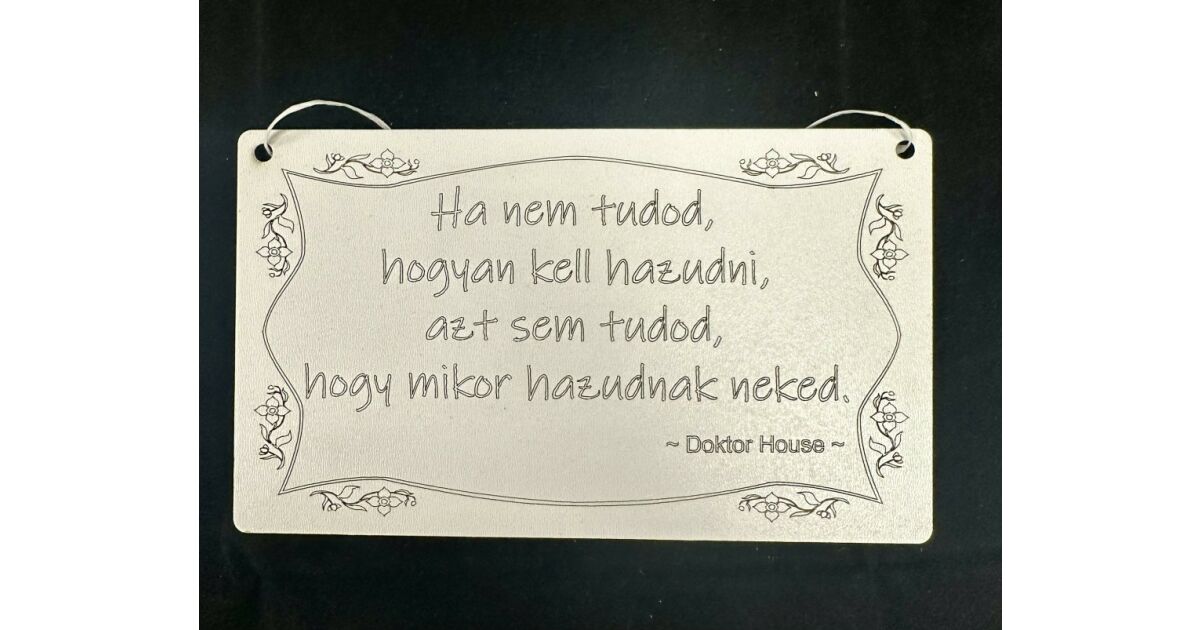 Ha nem tudod,
hogyan kell hazudni,
azt sem tudod,
hogy mikor hazudnak neked.
~ Doktor House ~